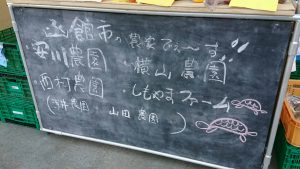 函館市の農家でぇ〜す
・安川農園
・横山農園
・西村農園
・しもやまファーム
(浅井農園 山田農園)